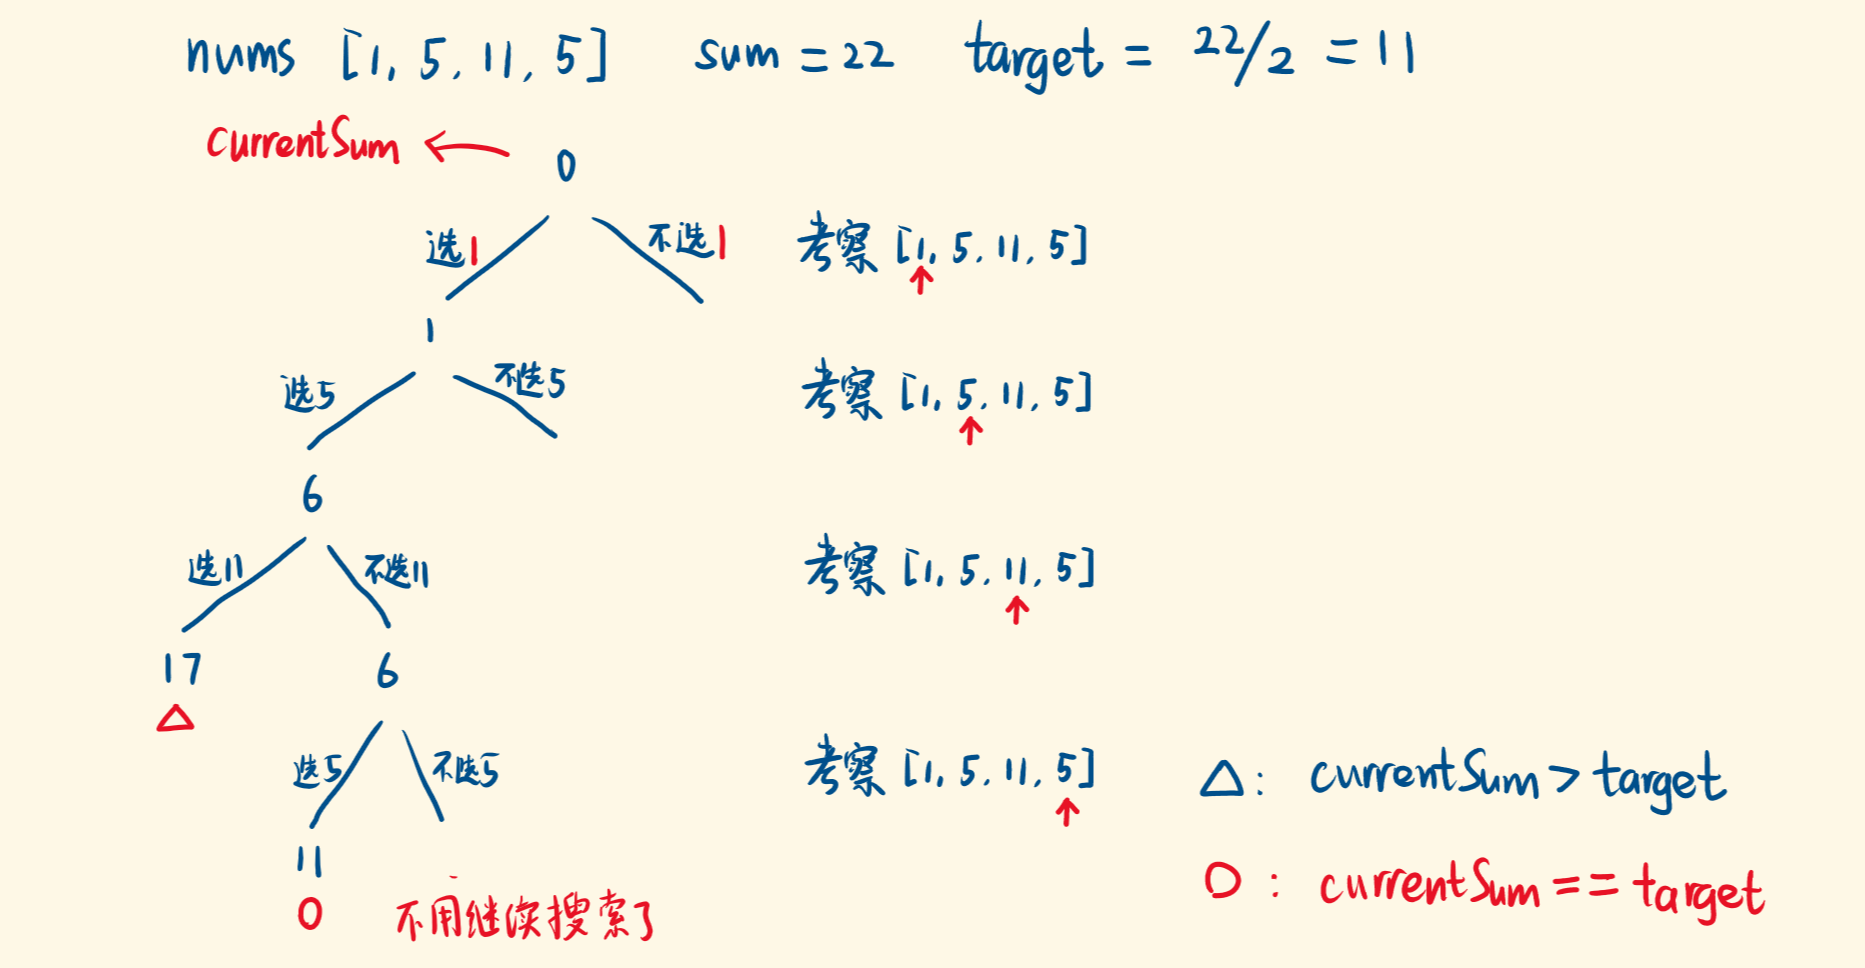 nums [1, 5, 11, 5] sum = 22 target = 22/2 = 11
currentSum ← 0
选1 不选1 考察 [1, 5, 11, 5]
↑
1
选5 不选5 考察 [1, 5, 11, 5]
↑
6
选11 不选11 考察 [1, 5, 11, 5]
↑
17 6
△
选5 不选5 考察 [1, 5, 11, 5] △: currentSum > target
↑
11
O 不用继续搜索了 O: currentSum == target